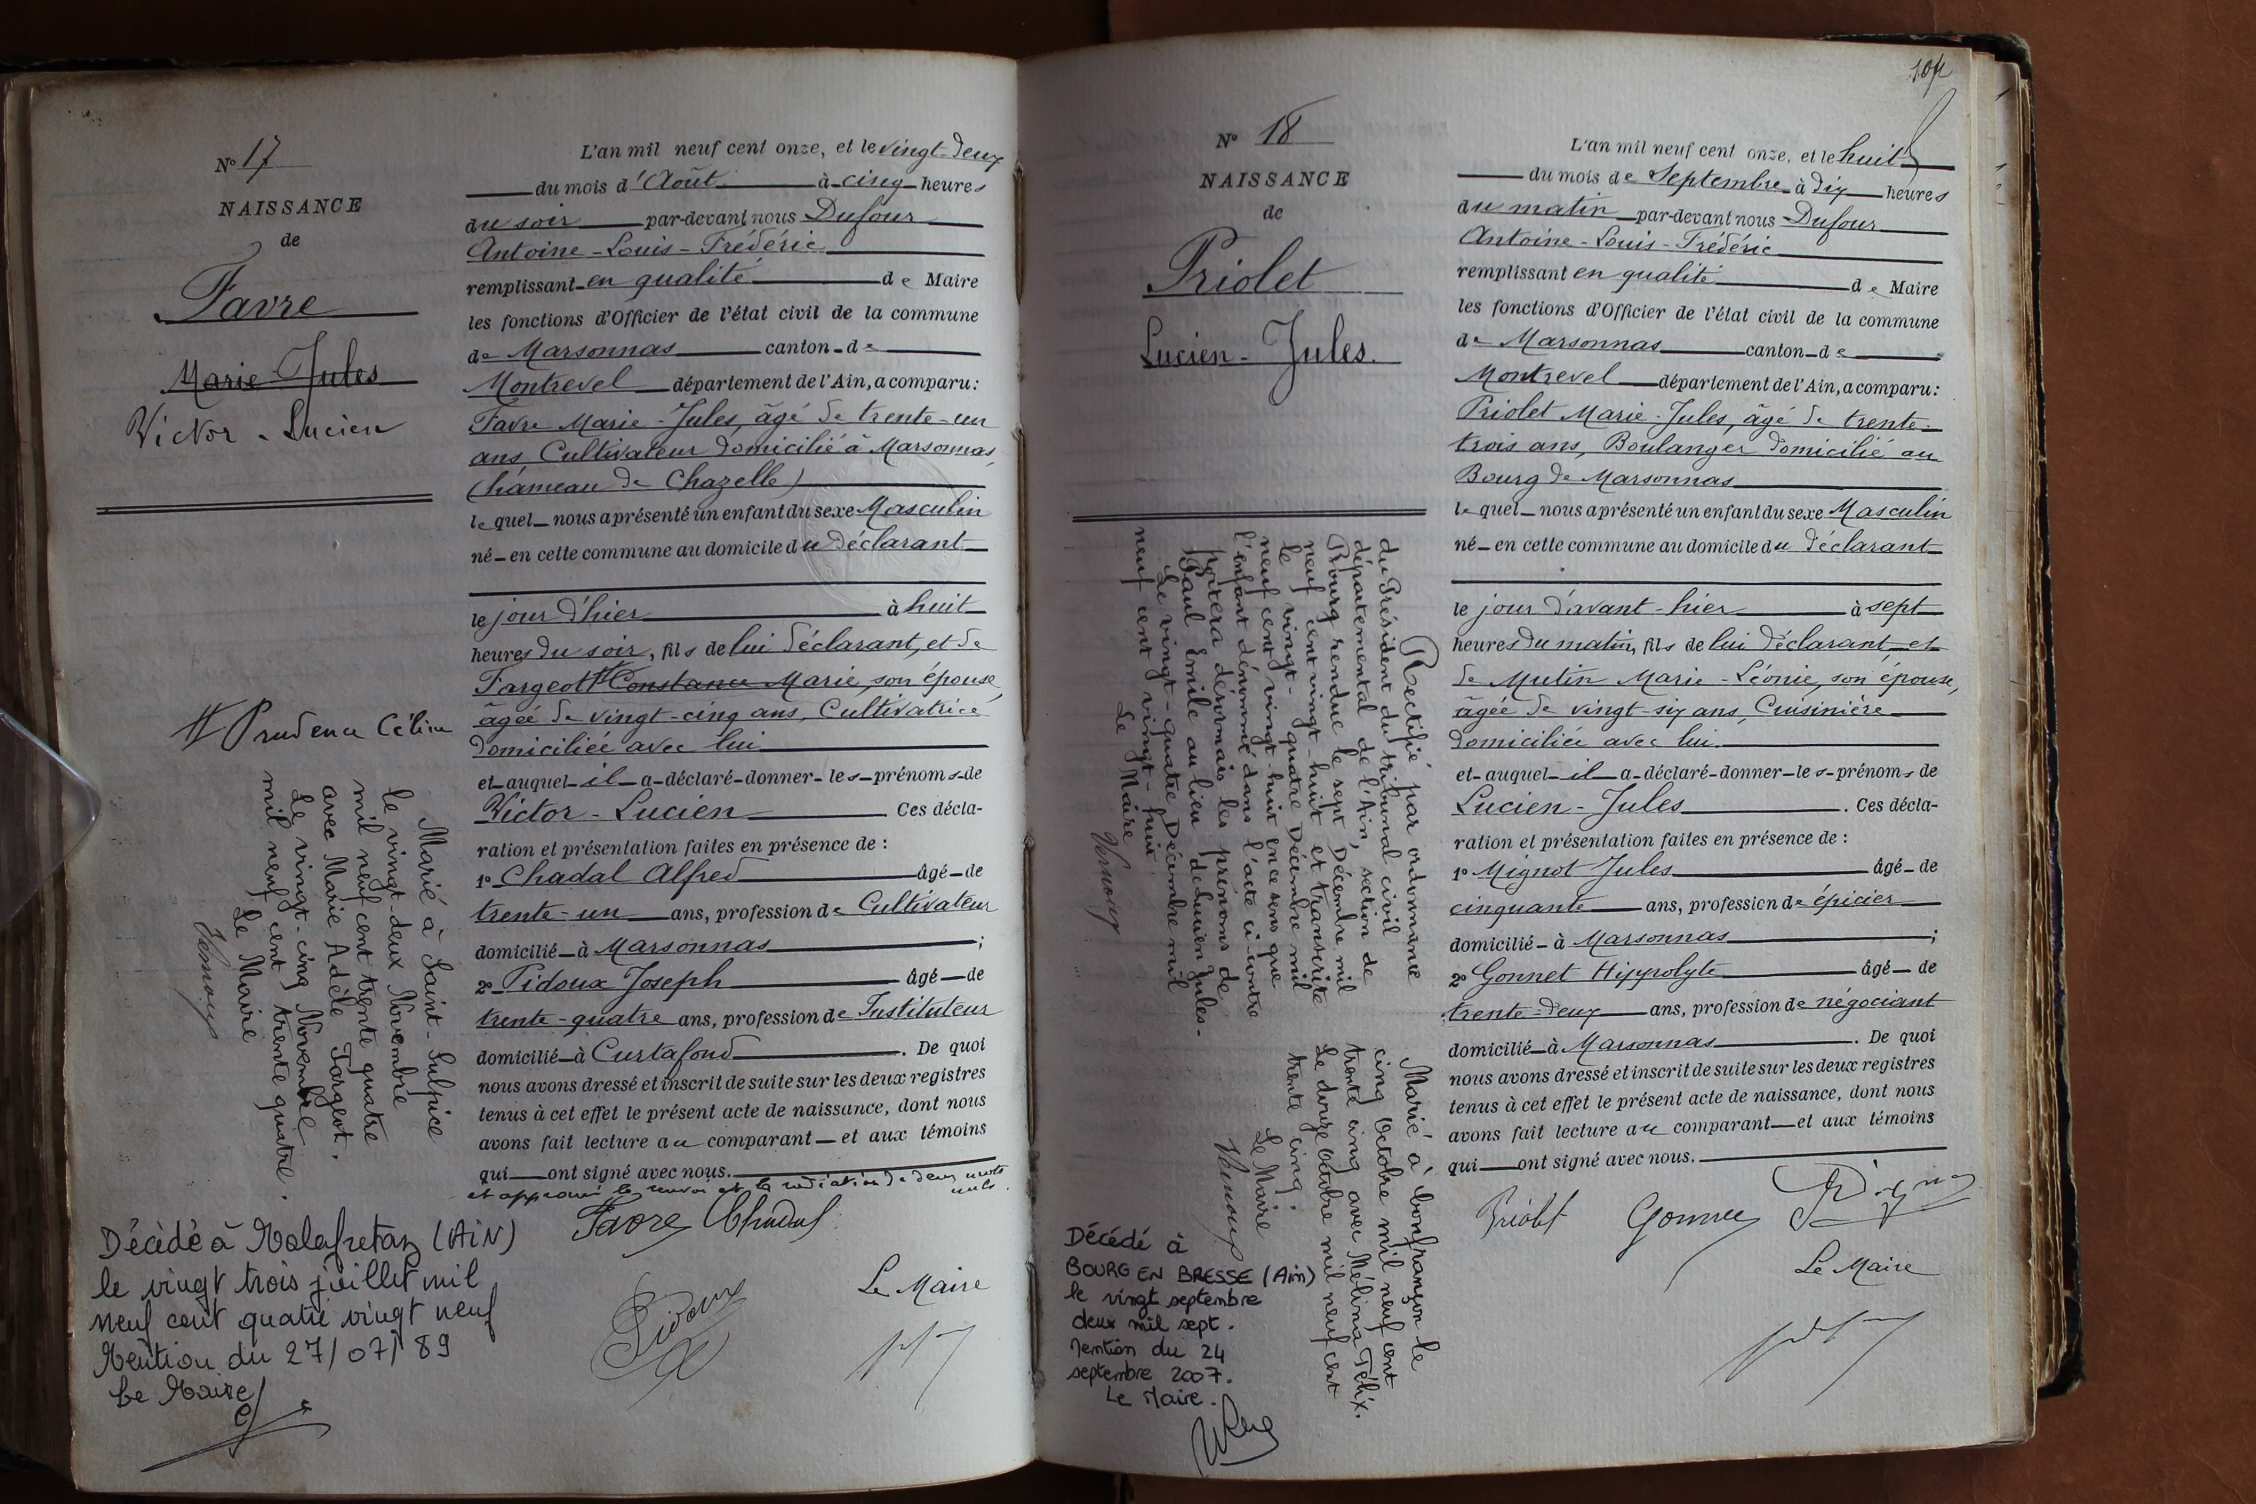 N° 17
NAISSANCE
de
Favre
Marie-Jules
Victor-Lucien
L'an mil neuf cent onze, et le vingt-deux
du mois d'Août à cinq heures
du soir par-devant nous Dufour
Antoine-Louis-Frédéric
remplissant en qualité de Maire
les fonctions d'Officier de l'état civil de la commune
de Marsonnas canton de
Montrevel département de l'Ain, a comparu:
Favre Marie-Jules, âgé de trente-un
ans, Cultivateur domicilié à Marsonnas,
(hameau de Chazelle)
lequel nous a présenté un enfant du sexe Masculin
né en cette commune au domicile du déclarant
le jour d'hier à huit
heures du soir, fils de lui déclarant, et de
Fargeot # Constance Marie, son épouse,
âgée de vingt-cinq ans, Cultivatrice
domiciliée avec lui
et auquel il a déclaré donner les prénoms de
Victor-Lucien. Ces décla-
ration et présentation faites en présence de :
1° Chadal Alfred âgé de
trente-un ans, profession de Cultivateur
domicilié à Marsonnas ;
2° Pidoux Joseph âgé de
trente-quatre ans, profession de Instituteur
domicilié à Curtafond. De quoi
nous avons dressé et inscrit de suite sur les deux registres
tenus à cet effet le présent acte de naissance, dont nous
avons fait lecture au comparant et aux témoins
qui ont signé avec nous.
et approuvé le renvoi et la radiation de deux mots
nuls.
Favre Chadal
Pidoux
Le Maire
# Prudence Céline
Marié à Saint-Sulpice
le vingt-deux Novembre
mil neuf cent trente quatre
avec Marie Adèle Fargeot.
Le vingt-cinq Novembre
mil neuf cent trente quatre.
Le Maire
Décédé à Malafretaz (AiN)
le vingt trois juillet mil
neuf cent quatre vingt neuf
Mention du 27/07/89
Le Maire
104
N° 18
NAISSANCE
de
Priolet
Lucien-Jules.
L'an mil neuf cent onze, et le huit
du mois de Septembre à dix heures
du matin par-devant nous Dufour
Antoine-Louis-Frédéric
remplissant en qualité de Maire
les fonctions d'Officier de l'état civil de la commune
de Marsonnas canton de
Montrevel département de l'Ain, a comparu:
Priolet Marie-Jules, âgé de trente-
trois ans, Boulanger domicilié au
Bourg de Marsonnas
lequel nous a présenté un enfant du sexe Masculin
né en cette commune au domicile du déclarant
le jour d'avant-hier à sept
heures du matin, fils de lui déclarant, et
de Mutin Marie-Léonie, son épouse,
âgée de vingt-six ans, Cuisinière
domiciliée avec lui.
et auquel il a déclaré donner les prénoms de
Lucien-Jules. Ces décla-
ration et présentation faites en présence de :
1° Mignot Jules âgé de
cinquante ans, profession de épicier
domicilié à Marsonnas ;
2° Gonnet Hippolyte âgé de
trente-deux ans, profession de négociant
domicilié à Marsonnas. De quoi
nous avons dressé et inscrit de suite sur les deux registres
tenus à cet effet le présent acte de naissance, dont nous
avons fait lecture au comparant et aux témoins
qui ont signé avec nous.
Priolet
Le Maire
Rectifié par ordonnance
du Président du tribunal civil
départemental de l'Ain, section de
Bourg rendue le sept Décembre mil
neuf cent vingt-huit et transcrite
le vingt-quatre Décembre mil
neuf cent vingt-huit en ce sens que
l'enfant dénommé dans l'acte ci-contre
portera désormais les prénoms de
Paul Emile au lieu de Lucien Jules.
Le vingt-quatre Décembre mil
neuf cent vingt-huit.
Le Maire
Marié à Confrançon le
cinq Octobre mil neuf cent
trente cinq avec Mélina Félix.
Le douze Octobre mil neuf cent
trente cinq.
Le Maire
Décédé à
BOURG EN BRESSE (Ain)
le vingt septembre
deux mil sept.
Mention du 24
septembre 2007.
Le Maire.